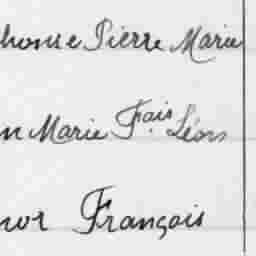 honse Pierre Marie
n Marie Fais Léon
nor François